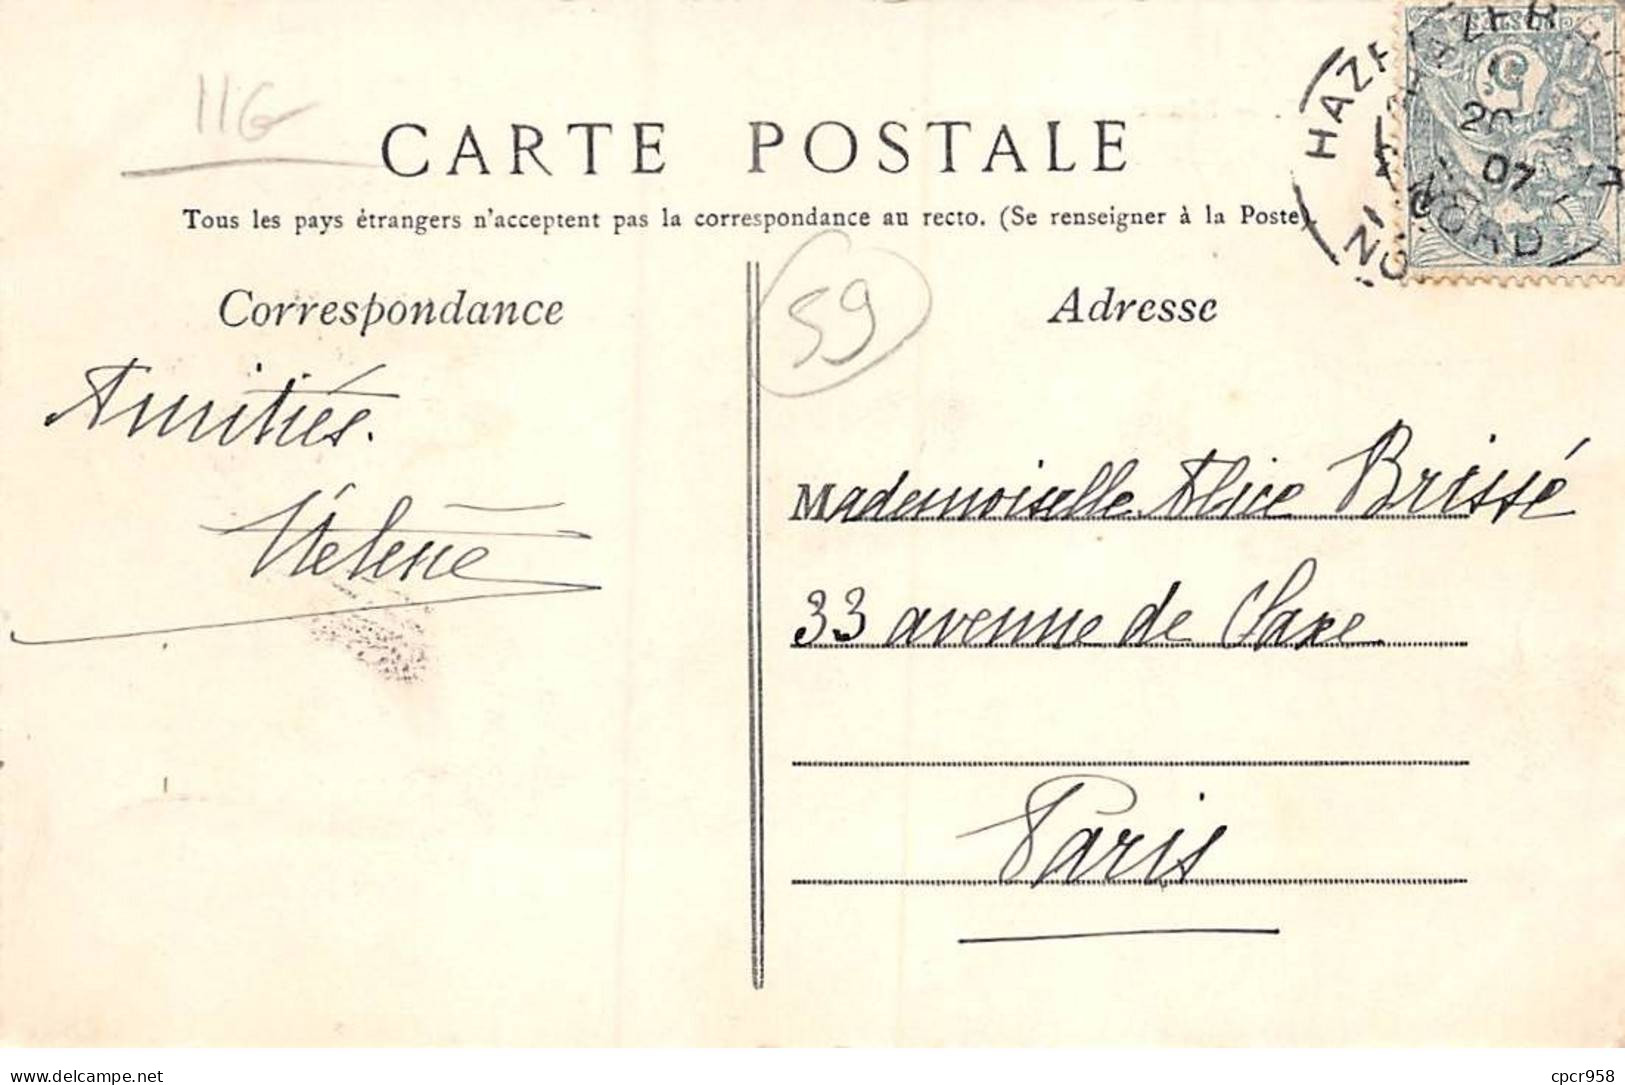 11G
CARTE POSTALE
Tous les pays étrangers n'acceptent pas la correspondance au recto. (Se renseigner à la Poste).
Correspondance
59
Adresse
Amitiés.
Hélène
Mademoiselle Alice Brissé
33 avenue de Saxe
Paris
HAZE
20
07
NORD
NO
5
delcampe.net
cpcr958